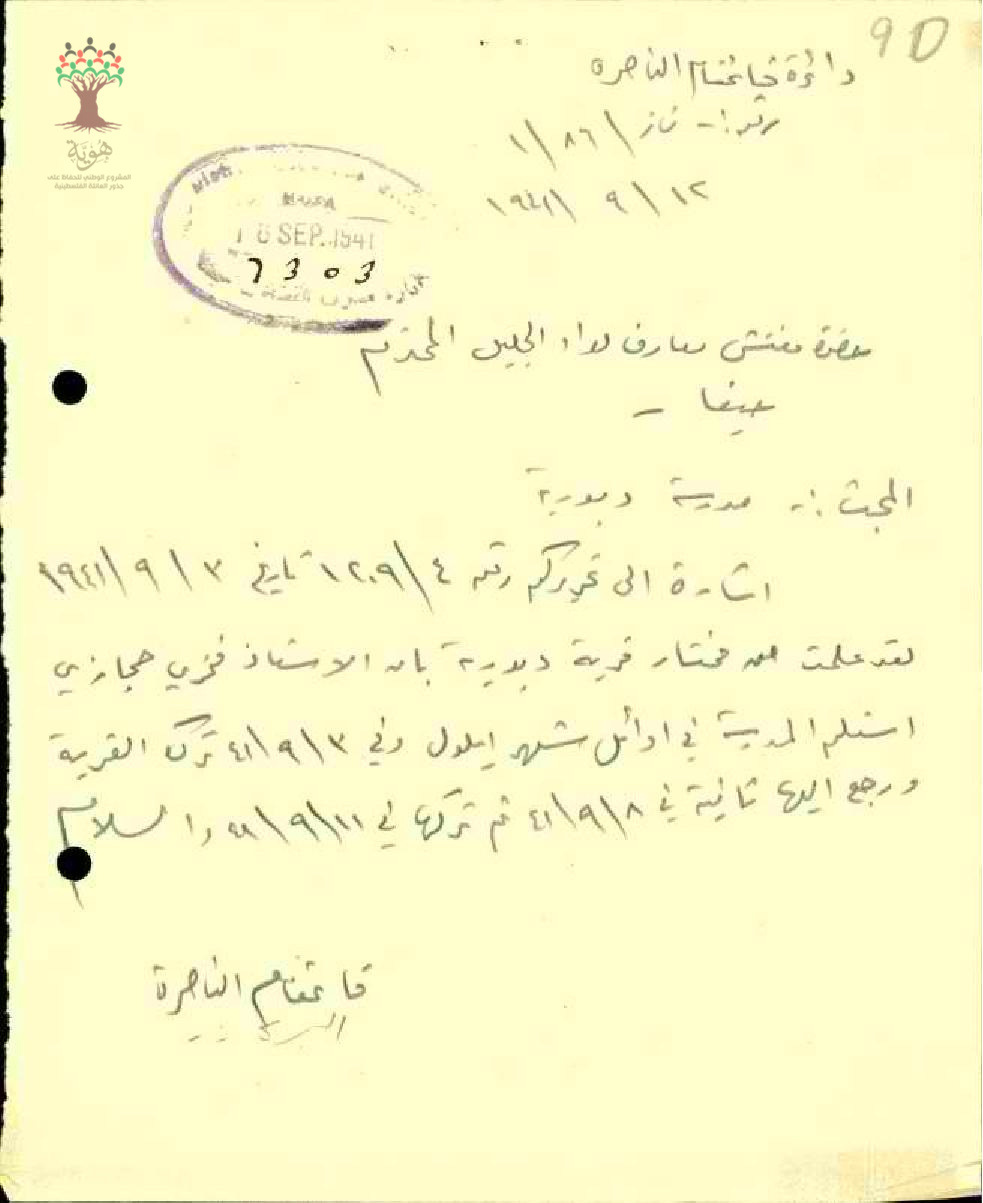 9 D
دائرة قائمقام الناصره
رقم :- ناز / ٨٦ / ١
١٢ / ٩ / ١٩٤١
هوية
المشروع الوطني للحفاظ على
جذور العائلة الفلسطينية
HAIFA
18 SEP. 1941
7303
حضرة مفتش معارف لواء الجليل المحترم
حيفا -
المبحث :- مدرسة دبورية
اشارة الى تحريركم رقم ٤ / ١٢٠٩ تاريخ ٣ / ٩ / ١٩٤١
لقد علمت من مختار قرية دبورية بان الاستاذ فخري حجازي
استلم المدرسة في اوائل شهر ايلول وفي ٣ / ٩ / ٤١ ترك القرية
ورجع اليها ثانية في ٨ / ٩ / ٤١ ثم تركها في ١١ / ٩ / ٤١ والسلام
قائمقام الناصرة